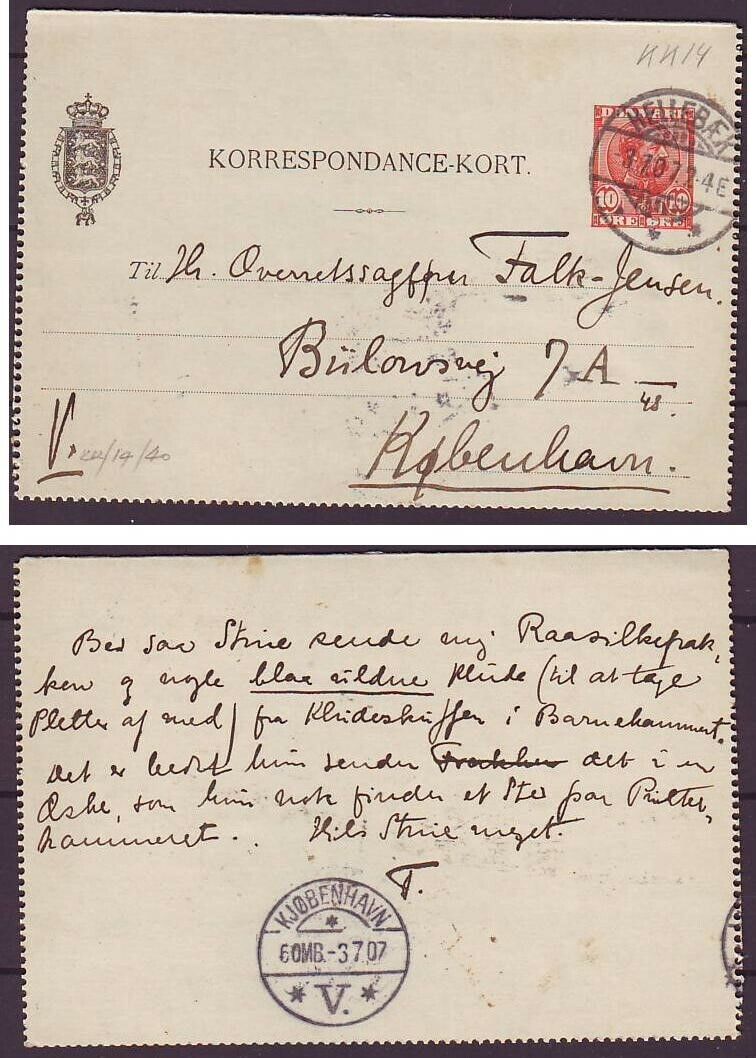 KK14
KORRESPONDANCE-KORT.
DANMARK
10 10
ØRE ØRE
HELLEBÆK
Til Hr. Overretssagfører Falk-Jensen.
Bülowsvej 7A
48.
V.
KK/14/40
København.
Bed saa Stine sende mig Raasilkefrak,
ken og nogle blaa uldne Klude (til at tage
Pletter af med) fra Kludeskuffen i Barnekammert.
Det er bedst hun sender Frakken det i en
Æske, som hun nok finder et Sted paa Pulter,
kammeret. Hils Stine meget.
T.
KJØBENHAVN
6OMB.-3.7.07
V.